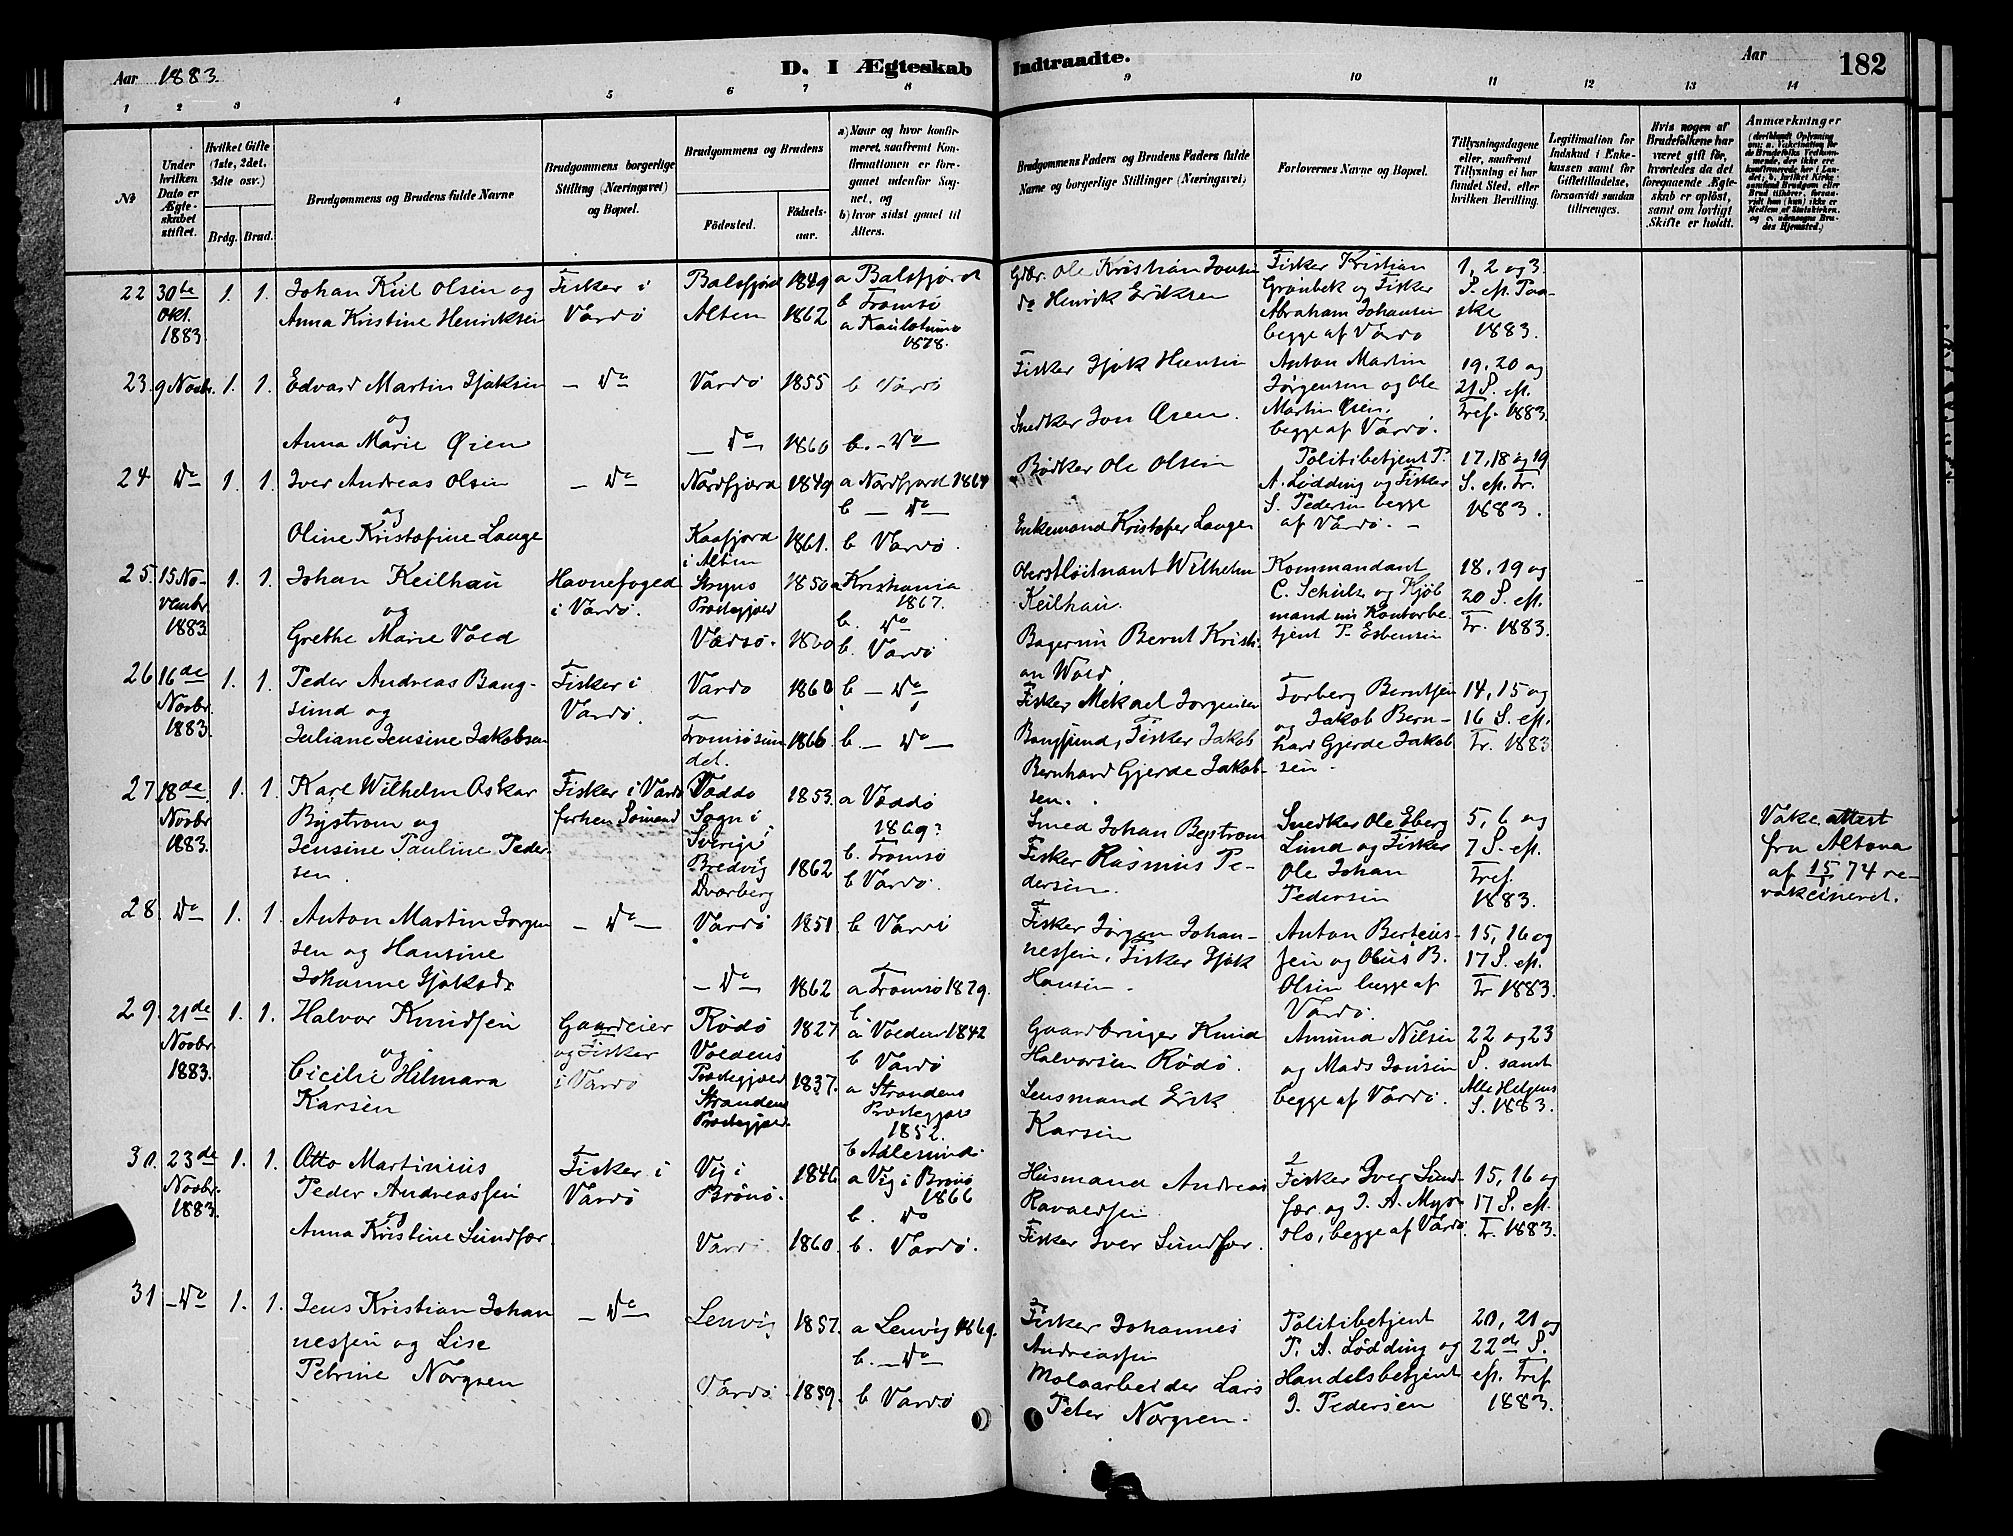 Aar 1883.
D. I Ægteskab Indtraadte.
Aar
182
1 2 3 4 5 6 7 8 9 10 11 12 13 14
№
Under hvilken Dato er Ægteskabet stiftet.
Hvilket Gifte (1ste, 2det, 3die osv.)
Brdg. Brud.
Brudgommens og Brudens fulde Navne
Brudgommens borgerlige Stilling (Næringsvei) og Bopæl.
Brudgommens og Brudens
Födested.
Födselsaar.
a) Naar og hvor konfirmeret, saafremt Konfirmationen er foregaaet udenfor Sognet, og
b) hvor sidst gaaet til Alters.
Brudgommens Faders og Brudens Faders fulde Navne og borgerlige Stillinger (Næringsvei)
Forlovernes Navne og Bopæl.
Tillysningsdagene eller, saafremt Tillysning ei har fundet Sted, efter hvilken Bevilling.
Legitimation for Indskud i Enkekassen samt for Giftetilladelse, forsaavidt saadan tiltrænges.
Hvis nogen af Brudefolkene har været gift för, hvorledes da det foregaaende Ægteskab er oplöst, samt om lovligt Skifte er holdt.
Anmærkninger
22 30te Okt. 1883 1. 1. Johan Kiil Olsen og
Anna Kristine Henriksen
Fisker i Vardö
Balsfjord 1849 a Balsfjord
b Tromsö
Alten 1862
1878.
Gdbr. Ole Kristian Jonsen
do Henrik Eriksen
Fisker Kristian
Grönbek og Fisker
Abraham Johansen
begge af Vardö
1, 2 og 3.
S. eft. Paaske
1883.
23. 9 Novbr. 1. 1. Edvard Martin Sjaksen
og
Anna Marie Öien
— Do
Vardö 1855 b Vardö
— Do — 1860 b. — Do —
Fisker Isak Hansen
Snedker Jon Öien.
Anton Martin
Jörgensen og Ole
Martin Öien.
begge af Vardö.
19, 20 og
21 S. eft.
Tref. 1883.
24 Do 1. 1. Iver Andreas Olsen
og
Oline Kristofine Lange
— Do
Nordfjord 1849 a Nordfjord 1864
b — Do —
Kaafjord
i Alten 1861. b Vardö.
Bödker Ole Olsen
Enkemand Kristofer Lange
Politibetjent P.
A. Lödding og Fisker
S. Pedersen begge
af Vardö. —
17, 18 og 19
S. eft. Tr.
1883.
25. 15 November 1883 1. 1. Johan Keilhau
og
Grethe Marie Vold
Havnefoged
i Vardö.
Stryns
Præstegjæld 1850 a Kristiania
1867.
b. Do
Vardö. 1860 b. Vardö
Oberstlöitnant Wilhelm
Keilhau.
Bernt Kristian
Wold
Kommandant
C. Schulz og Kjöbmand
P. Esbensen
18, 19 og
20 S. eft.
Tr. 1883.
26 16de Novbr. 1883 1. 1. Peder Andreas Bangsund
og
Juliane Jensine Jakobsen
Fisker i
Vardö.
Vardö 1860 b — Do —
Tromsösundet. 1866 b — Do —
Fisker Mikael Jörgensen
Bangsund, Fisker Jakob
Bernhard Gjerde Jakobsen.
Torberg Berntsen
og Jakob Bernhard
Gjerde Jakobsen.
14, 15 og
16 S. eft.
Tr. 1883
27 18de Novbr 1883. 1. 1. Karl Wilhelm Oskar
Byström og
Jensine Pauline Pedersen.
Fisker i Vardö
forhen Sömand
Væddö
Sogn i
Sverige 1853. a Væddö
1869?
b. Tromsö
Bredvig
1862 b Vardö.
Smed Johan Byström
Fisker Rasmus Pedersen.
Snedker Ole Eberg
Lund og Fisker
Ole Johan
Pedersen
5, 6 og
7 S. eft.
Tref.
1883.
Vakc. attest
fra Altona
af 15/ 74 revakcineret.
28. Do 1. 1. Anton Martin Jörgensen
og Hansine
Johanne Isaksdr
— Do —
Vardö 1851 b Vardö
— Do — 1862 a Tromsö 1879.
b
Fisker Jörgen Johannessen,
Fisker Isak
Hansen.
Anton Berteussen
og Olius B.
Olsen begge af
Vardö.
15, 16 og
17 S. eft.
Tr 1883.
29. 21de Novbr. 1883. 1. 1. Halvor Knudsen
og
Cicilie Helmara
Karsen
Gaardeier
og Fisker
i Vardö
Rödö
Voldens
Præstegjæld 1827 a Volden 1842
b Vardö
Strandens
Præstegjæld. 1837. a Strandens
Præstegjæld
1852.
b Aalesund.
Gaardbruger Knud
Halvorsen Rödö.
Lensmand Erik
Karsen
Amund Nilsen
og Mads Jonsen
begge af Vardö.
22 og 23
S. samt
Alle Helgens
S. 1883.
30. 23de Novbr. 1883. 1. 1. Otto Martinius
Peder Andreassen
og
Anna Kristine Sundfær.
Fisker i
Vardö
Vig i
Brönö. 1846 a Vig i Brönö
1866
b. Do
Vardö. 1860. b. Vardö.
Husmand Andreas
Ravaldsen
Fisker Iver Sundfær.
Fisker Iver Sundfær
og J. A.
begge af Vardö.
15, 16 og
17 S. eft.
Tr. 1883.
31 — Do 1. 1. Jens Kristian Johannessen
og Lise
Petrine Norgren
— Do —
Lenvig 1857. a Lenvig 1869.
b. — Do —
Vardö. 1859. b Vardö
Fisker Johannes
Andreassen
Moloarbeider Lars
Peter Norgren.
Politibetjent
P. A. Lödding og
Handelsbetjent
J. Pedersen
20, 21 og
22de S.
eft. Tref
1883.